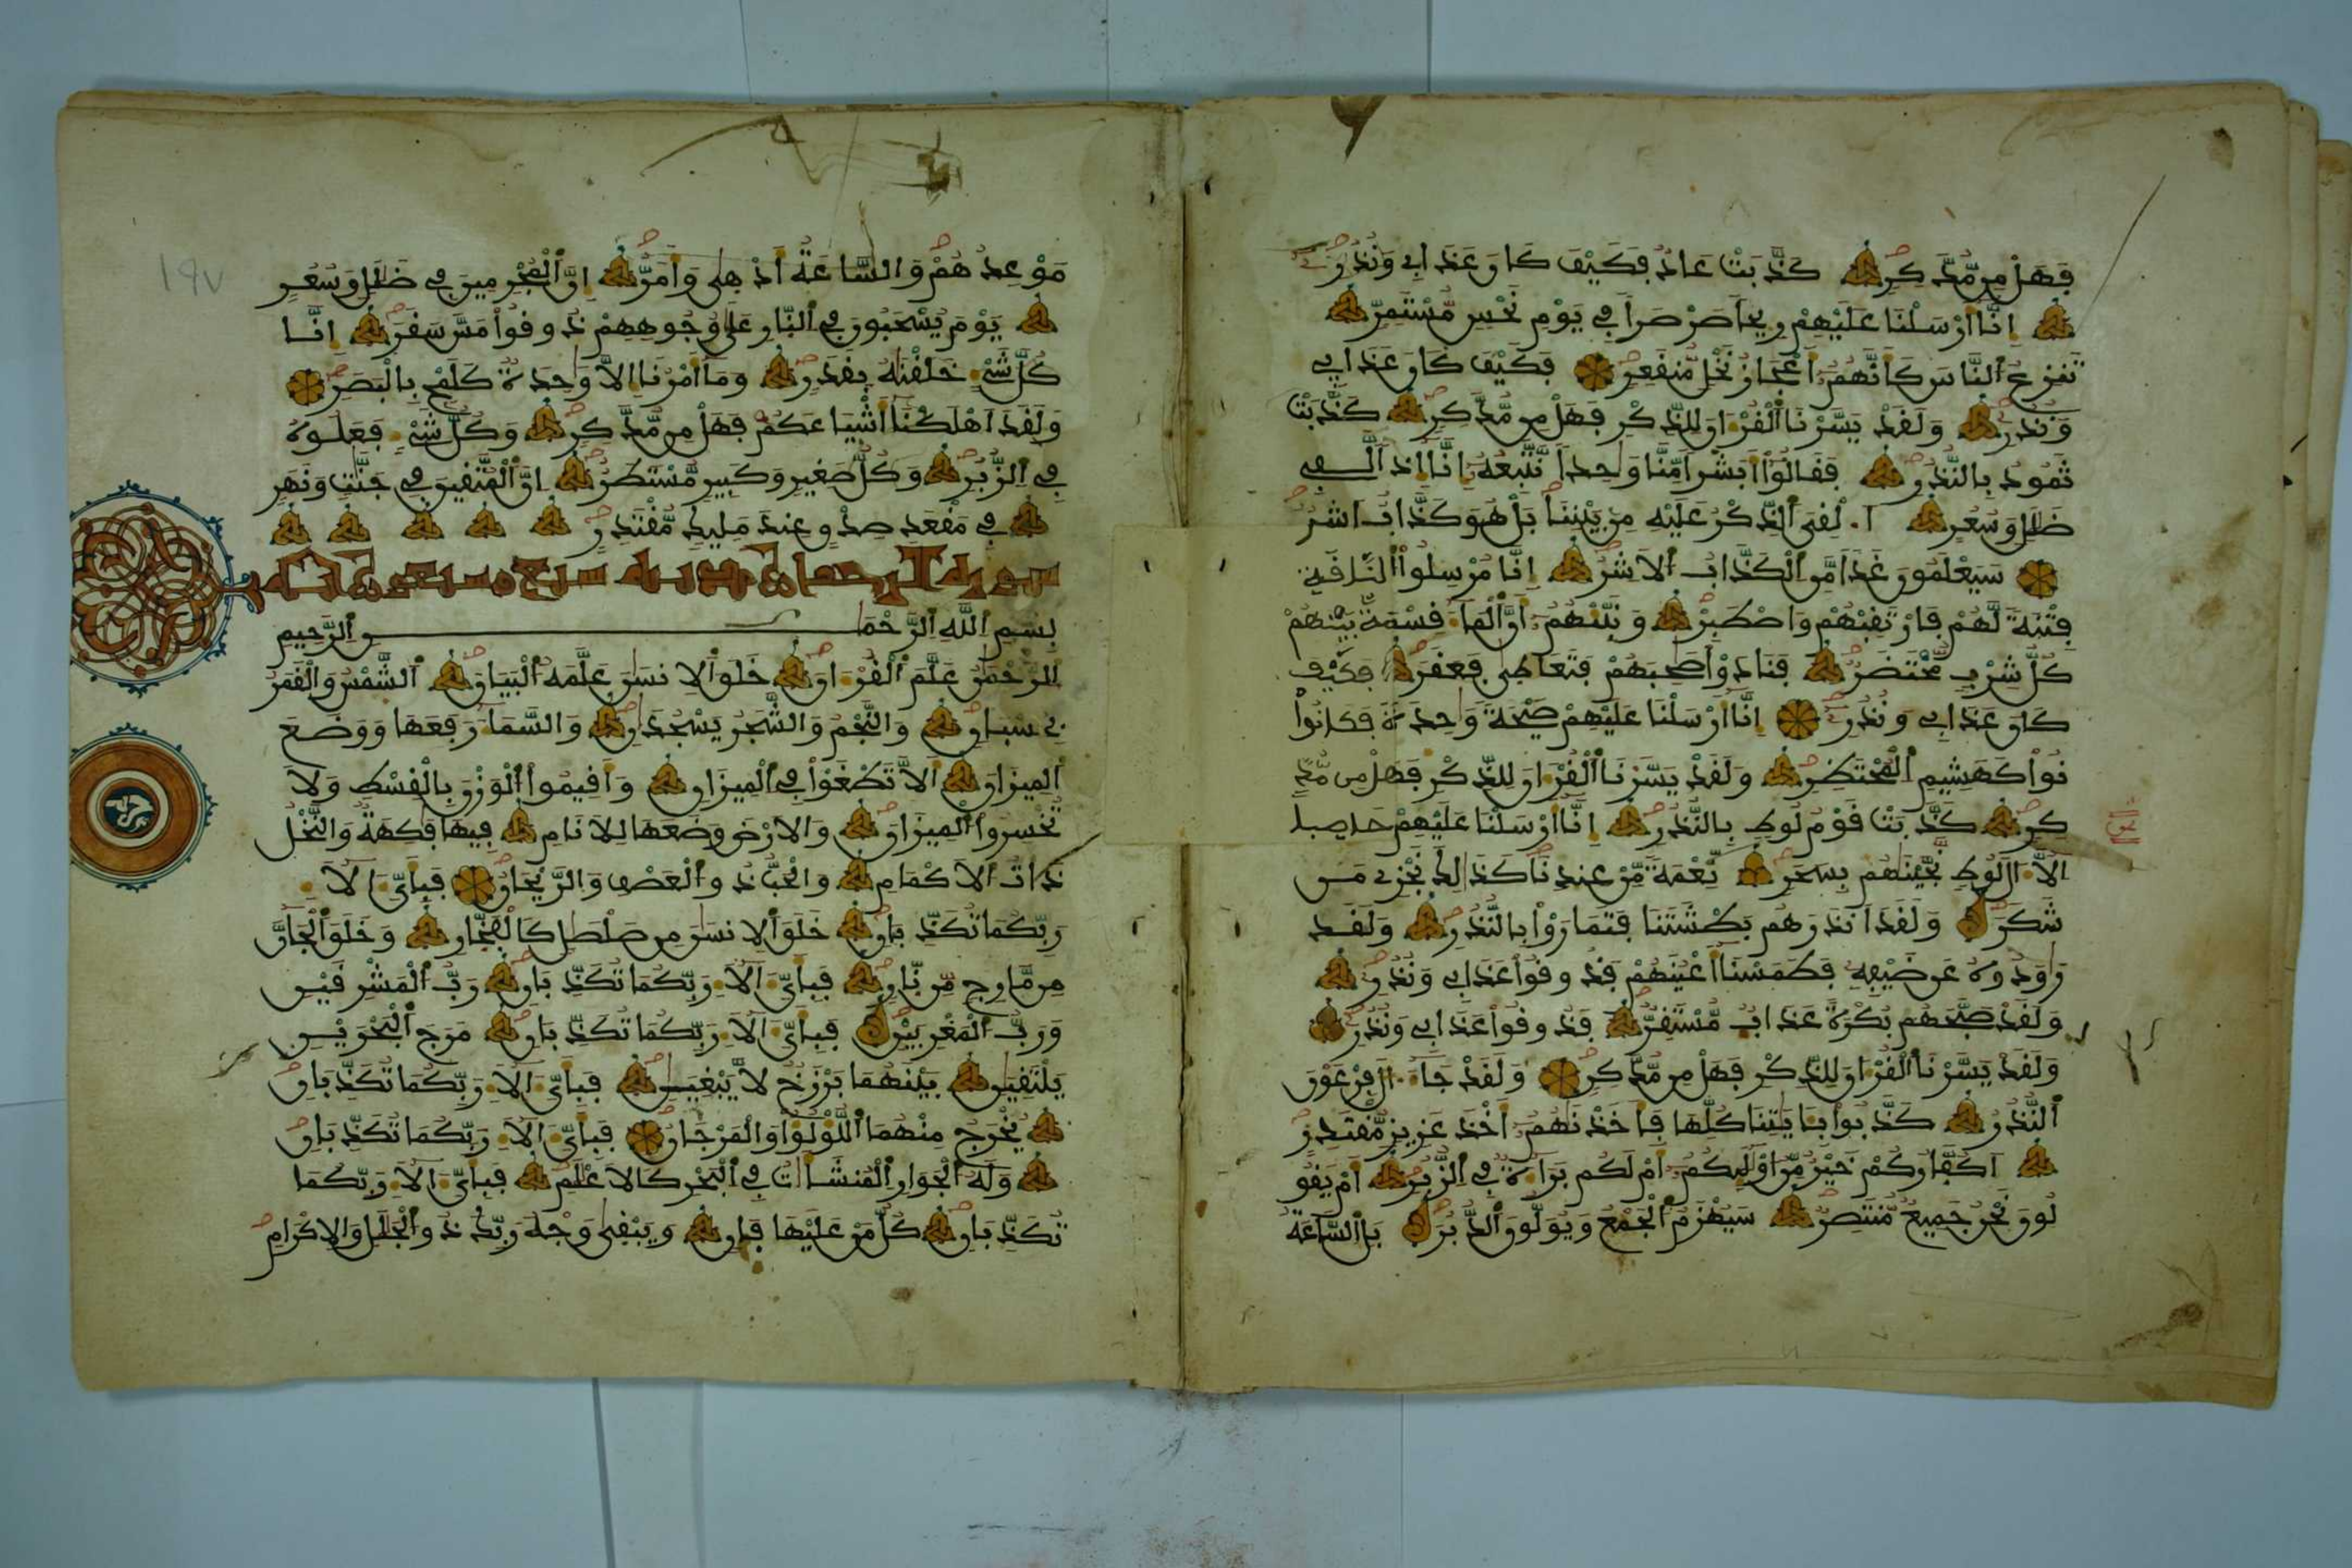 فَهَلْ مِن مُّدَّكِرٍ كَذَّبَتْ عَادٌ فَكَيْفَ كَانَ عَذَابِي وَنُذُرِ
إِنَّا أَرْسَلْنَا عَلَيْهِمْ رِيحاً صَرْصَراً فِي يَوْمِ نَحْسٍ مُّسْتَمِرٍّ
تَنزِعُ ٱلنَّاسَ كَأَنَّهُمْ أَعْجَازُ نَخْلٍ مُّنقَعِرٍ فَكَيْفَ كَانَ عَذَابِي
وَنُذُرِ وَلَقَدْ يَسَّرْنَا ٱلْقُرْءَانَ لِلذِّكْرِ فَهَلْ مِن مُّدَّكِرٍ كَذَّبَتْ
ثَمُودُ بِالنُّذُرِ فَقَالُوٓاْ أَبَشَراً مِّنَّا وَٰحِداً نَّتَّبِعُهُۥٓ إِنَّآ إِذاً لَّفِي
ضَلَٰلٍ وَسُعُرٍ أَ.لْقِيَ ٱلذِّكْرُ عَلَيْهِ مِنۢ بَيْنِنَا بَلْ هُوَ كَذَّابٌ أَشِرٌ
سَيَعْلَمُونَ غَداً مَّنِ ٱلْكَذَّابُ ٱلْأَشِرُ إِنَّا مُرْسِلُواْ ٱلنَّاقَةِ
فِتْنَةً لَّهُمْ فَارْتَقِبْهُمْ وَاصْطَبِرْ وَنَبِّئْهُمْ أَنَّ ٱلْمَآءَ قِسْمَةٌ بَيْنَهُمْ
كُلُّ شِرْبٍ مُّحْتَضَرٌ فَنَادَوْاْ صَٰحِبَهُمْ فَتَعَاطَىٰ فَعَقَرَ فَكَيْفَ
كَانَ عَذَابِي وَنُذُرِ إِنَّآ أَرْسَلْنَا عَلَيْهِمْ صَيْحَةً وَٰحِدَةً فَكَانُواْ
نُواْ كَهَشِيمِ ٱلْمُحْتَظِرِ وَلَقَدْ يَسَّرْنَا ٱلْقُرْءَانَ لِلذِّكْرِ فَهَلْ مِن مُّدَّ
كِرٍ كَذَّبَتْ قَوْمُ لُوطٍ بِالنُّذُرِ إِنَّآ أَرْسَلْنَا عَلَيْهِمْ حَاصِباً
إِلَّآ ءَالَ لُوطٍ نَّجَّيْنَٰهُم بِسَحَرٍ نِّعْمَةً مِّنْ عِندِنَا كَذَٰلِكَ نَجْزِي مَن
شَكَرَ وَلَقَدْ أَنذَرَهُم بَطْشَتَنَا فَتَمَارَوْاْ بِالنُّذُرِ وَلَقَد
رَٰوَدُوهُ عَن ضَيْفِهِۦ فَطَمَسْنَآ أَعْيُنَهُمْ فَذُوقُواْ عَذَابِي وَنُذُرِ
وَلَقَدْ صَبَّحَهُم بُكْرَةً عَذَابٌ مُّسْتَقِرٌّ فَذُوقُواْ عَذَابِي وَنُذُرِ
وَلَقَدْ يَسَّرْنَا ٱلْقُرْءَانَ لِلذِّكْرِ فَهَلْ مِن مُّدَّكِرٍ وَلَقَدْ جَآءَ ءَالَ فِرْعَوْنَ
ٱلنُّذُرُ كَذَّبُواْ بِـَٔايَٰتِنَا كُلِّهَا فَأَخَذْنَٰهُمْ أَخْذَ عَزِيزٍ مُّقْتَدِرٍ
أَكُفَّارُكُمْ خَيْرٌ مِّنْ أُوْلَٰئِكُمْ أَمْ لَكُم بَرَآءَةٌ فِي ٱلزُّبُرِ أَمْ يَقُو
لُونَ نَحْنُ جَمِيعٌ مُّنتَصِرٌ سَيُهْزَمُ ٱلْجَمْعُ وَيُوَلُّونَ ٱلدُّبُرَ بَلِ ٱلسَّاعَةُ
١٩٧
مَوْعِدُهُمْ وَالسَّاعَةُ أَدْهَىٰ وَأَمَرُّ إِنَّ ٱلْمُجْرِمِينَ فِي ضَلَٰلٍ وَسُعُرٍ
يَوْمَ يُسْحَبُونَ فِي ٱلنَّارِ عَلَىٰ وُجُوهِهِمْ ذُوقُواْ مَسَّ سَقَرَ إِنَّا
كُلَّ شَيْءٍ خَلَقْنَٰهُ بِقَدَرٍ وَمَآ أَمْرُنَآ إِلَّا وَٰحِدَةٌ كَلَمْحٍ بِالْبَصَرِ
وَلَقَدْ أَهْلَكْنَآ أَشْيَاعَكُمْ فَهَلْ مِن مُّدَّكِرٍ وَكُلُّ شَيْءٍ فَعَلُوهُ
فِي ٱلزُّبُرِ وَكُلُّ صَغِيرٍ وَكَبِيرٍ مُّسْتَطَرٌ إِنَّ ٱلْمُتَّقِينَ فِي جَنَّٰتٍ وَنَهَرٍ
فِي مَقْعَدِ صِدْقٍ عِندَ مَلِيكٍ مُّقْتَدِرٍ
سورة الرحمان مدنية سبع وسبعون آية
بِسْمِ ٱللَّهِ ٱلرَّحْمَٰنِ ٱلرَّحِيمِ
ٱلرَّحْمَٰنُ عَلَّمَ ٱلْقُرْءَانَ خَلَقَ ٱلْإِنسَٰنَ عَلَّمَهُ ٱلْبَيَانَ ٱلشَّمْسُ وَالْقَمَرُ
بِحُسْبَانٍ وَالنَّجْمُ وَالشَّجَرُ يَسْجُدَٰنِ وَالسَّمَآءَ رَفَعَهَا وَوَضَعَ
ٱلْمِيزَانَ أَلَّا تَطْغَوْاْ فِي ٱلْمِيزَانِ وَأَقِيمُواْ ٱلْوَزْنَ بِالْقِسْطِ وَلَا
تُخْسِرُواْ ٱلْمِيزَانَ وَالْأَرْضَ وَضَعَهَا لِلْأَنَامِ فِيهَا فَٰكِهَةٌ وَالنَّخْلُ
ذَاتُ ٱلْأَكْمَامِ وَالْحَبُّ ذُو ٱلْعَصْفِ وَالرَّيْحَانُ فَبِأَيِّ ءَالَآءِ
رَبِّكُمَا تُكَذِّبَانِ خَلَقَ ٱلْإِنسَٰنَ مِن صَلْصَٰلٍ كَالْفَخَّارِ وَخَلَقَ ٱلْجَآنَّ
مِن مَّارِجٍ مِّن نَّارٍ فَبِأَيِّ ءَالَآءِ رَبِّكُمَا تُكَذِّبَانِ رَبُّ ٱلْمَشْرِقَيْنِ
وَرَبُّ ٱلْمَغْرِبَيْنِ فَبِأَيِّ ءَالَآءِ رَبِّكُمَا تُكَذِّبَانِ مَرَجَ ٱلْبَحْرَيْنِ
يَلْتَقِيَٰنِ بَيْنَهُمَا بَرْزَخٌ لَّا يَبْغِيَٰنِ فَبِأَيِّ ءَالَآءِ رَبِّكُمَا تُكَذِّبَانِ
يُخْرَجُ مِنْهُمَا ٱللُّؤْلُؤُاْ وَالْمَرْجَانُ فَبِأَيِّ ءَالَآءِ رَبِّكُمَا تُكَذِّبَانِ
وَلَهُ ٱلْجَوَارِ ٱلْمُنشَـَٔاتُ فِي ٱلْبَحْرِ كَالْأَعْلَٰمِ فَبِأَيِّ ءَالَآءِ رَبِّكُمَا
تُكَذِّبَانِ كُلُّ مَنْ عَلَيْهَا فَانٍ وَيَبْقَىٰ وَجْهُ رَبِّكَ ذُو ٱلْجَلَٰلِ وَالْإِكْرَامِ